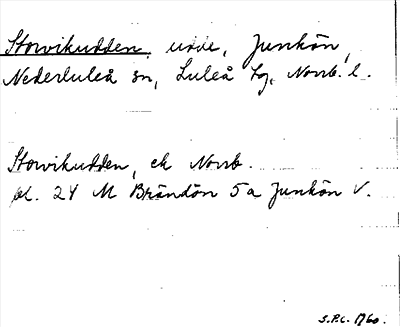 Storvikudden, udde, Junkön,
Nederluleå sn, Luleå tg, Norrb. l.
Storvikudden, ek Norrb.
bl. 24 M Brändön 5a Junkön V.
S.P.C. 1960.